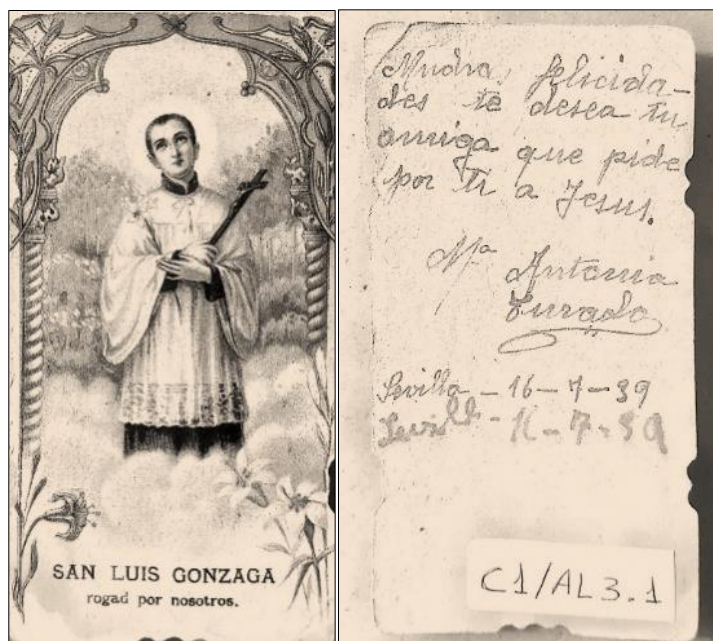 SAN LUIS GONZAGA
rogad por nosotros.
felicida-
des te desea tu
amiga que pide
por ti a Jesus.
Mª Antonia
Jurado
Sevilla - 16 - 7 - 39
Sevilla - 16 - 7 - 39
C1/AL3.1